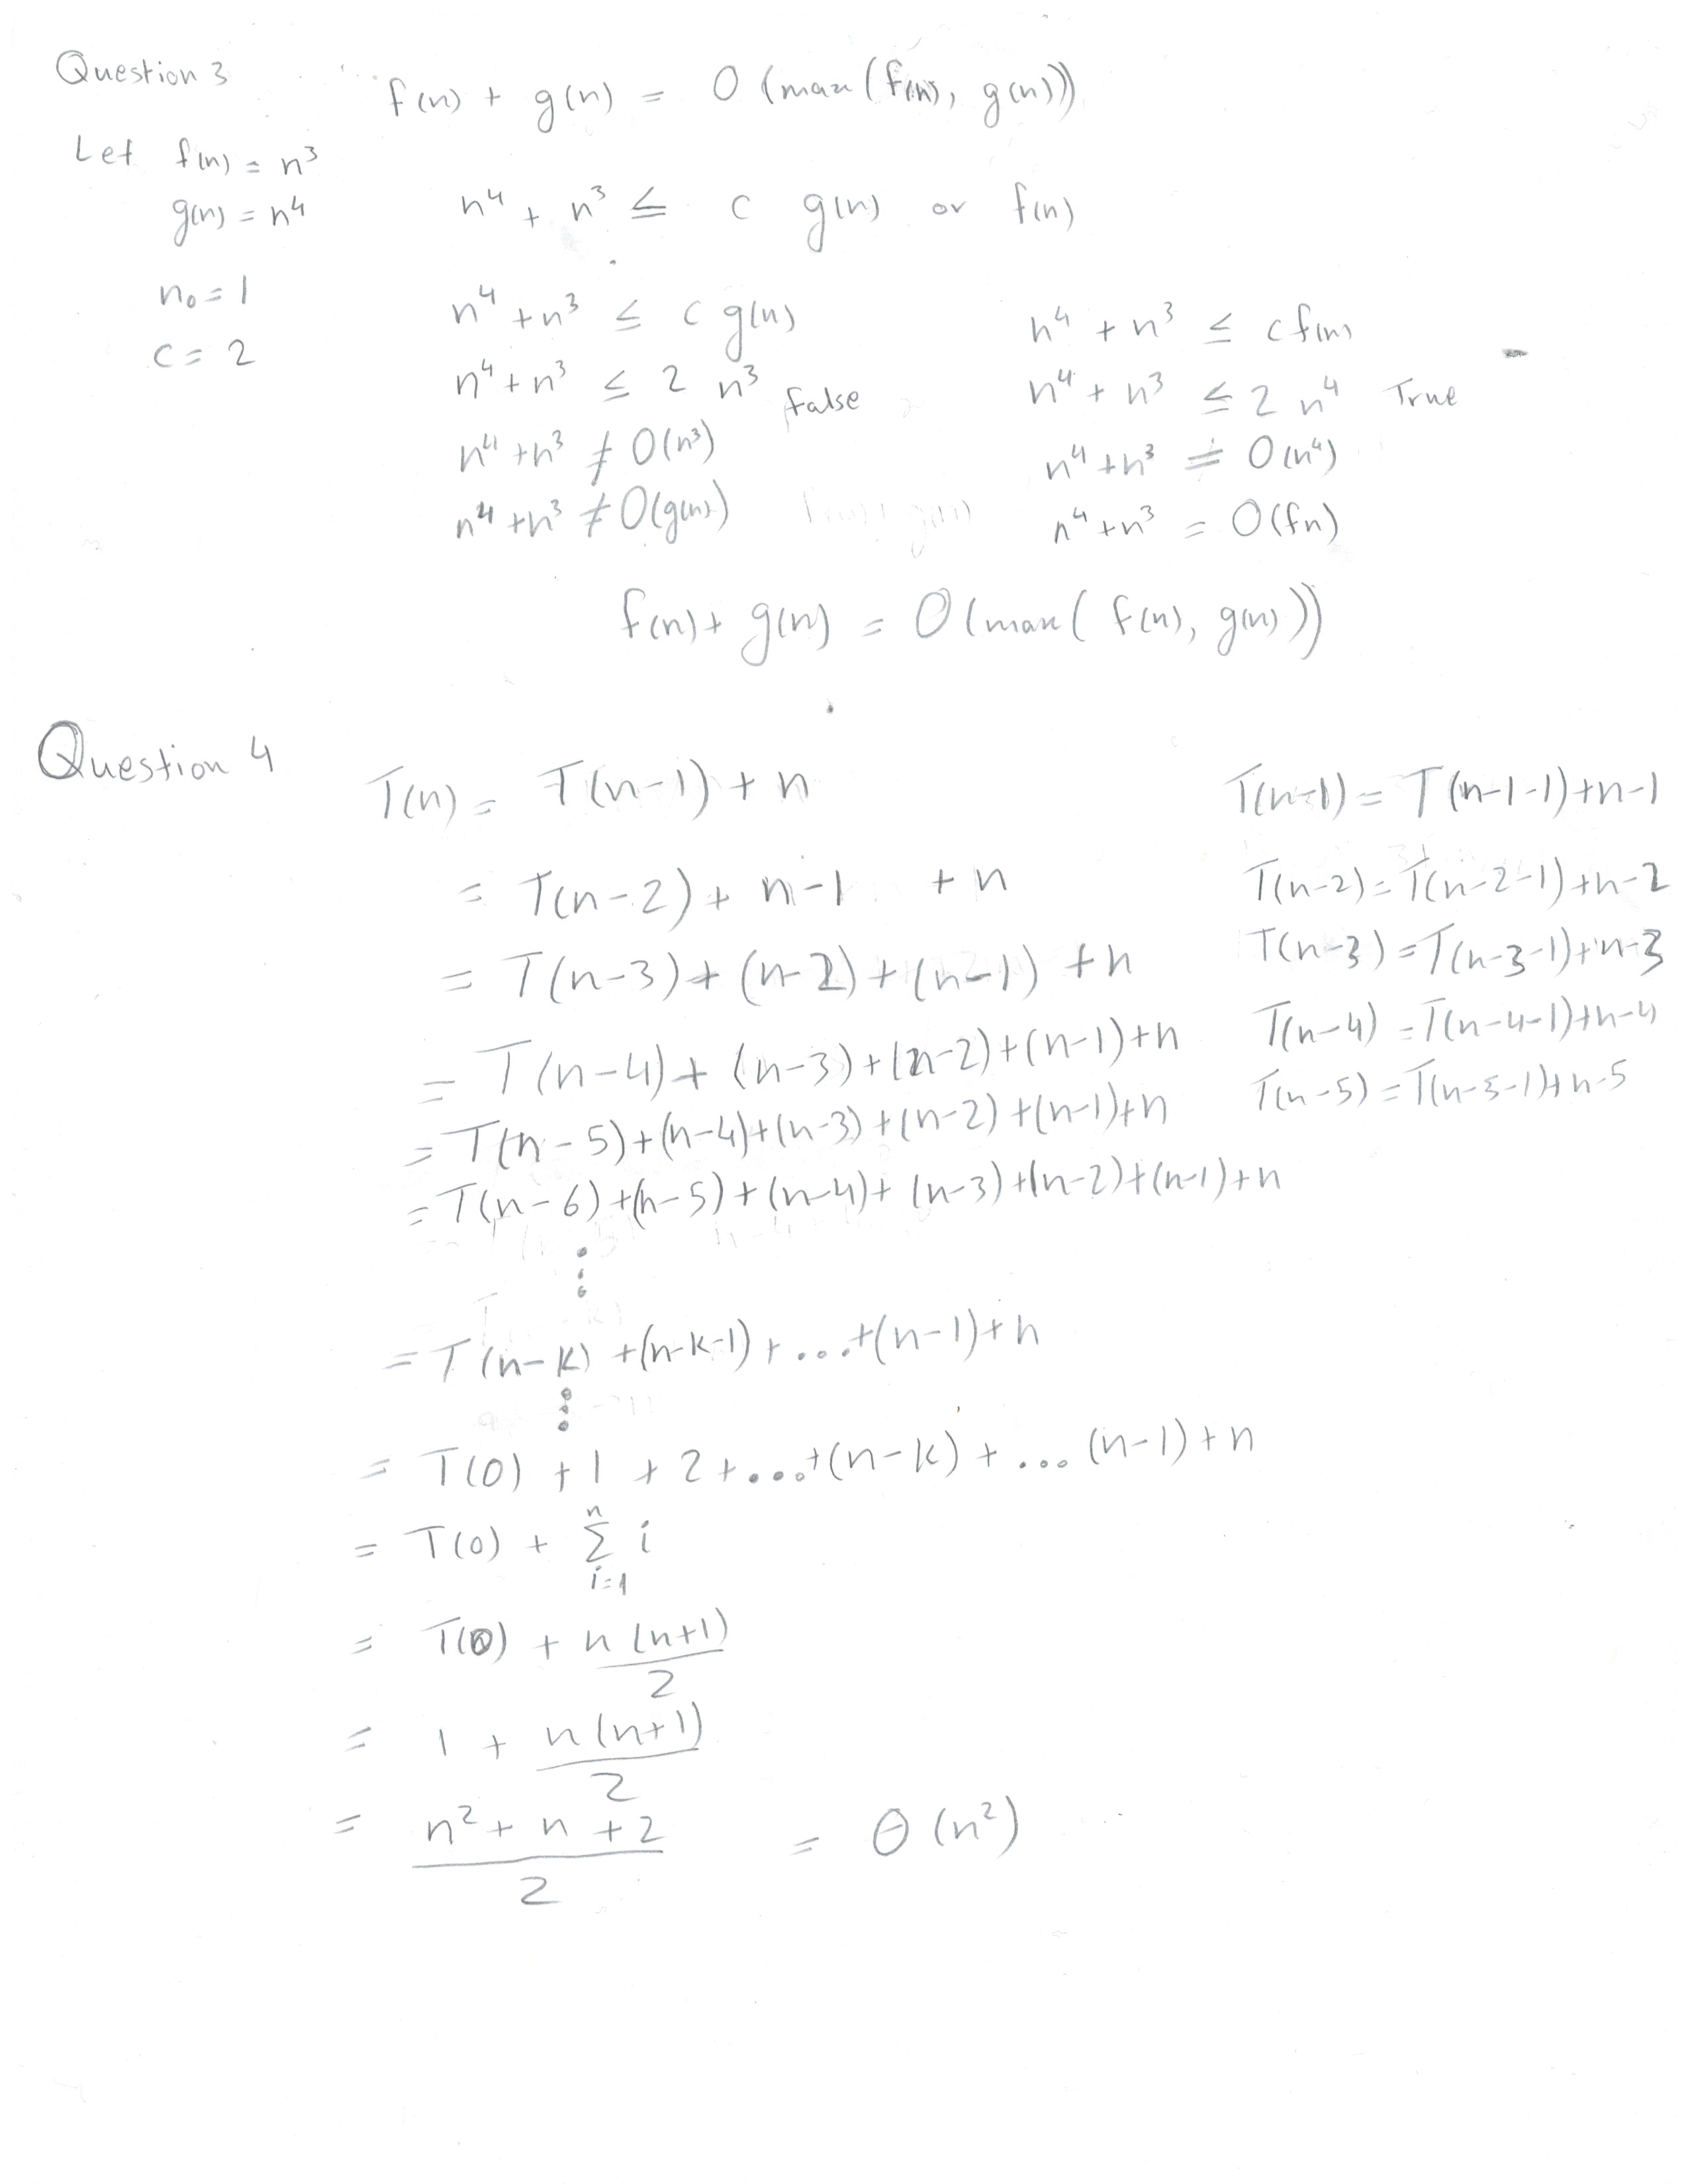 Question 3
f(n) + g(n) = O (max (f(n), g(n)))
Let f(n) = n³
g(n) = n⁴
n⁴ + n³ ≤ c g(n) or f(n)
n₀ = 1
c = 2
n⁴ + n³ ≤ c g(n)
n⁴ + n³ ≤ 2 n³ false
n⁴ + n³ ≠ O(n³)
n⁴ + n³ ≠ O(g(n))
n⁴ + n³ ≤ c f(n)
n⁴ + n³ ≤ 2 n⁴ True
n⁴ + n³ = O(n⁴)
n⁴ + n³ = O(fn)
f(n) + g(n) = O(max( f(n), g(n)))
Question 4
T(n) = T(n-1) + n
= T(n-2) + n-1 + n
= T(n-3) + (n-2) + (n-1) + n
= T(n-4) + (n-3) + (n-2) + (n-1) + n
= T(n-5) + (n-4) + (n-3) + (n-2) + (n-1) + n
= T(n-6) + (n-5) + (n-4) + (n-3) + (n-2) + (n-1) + n
⋮
= T(n-k) + (n-k-1) + ... + (n-1) + n
⋮
= T(0) + 1 + 2 + ... + (n-k) + ... (n-1) + n
= T(0) + Σ_{i=1}^{n} i
= T(0) + n(n+1)/2
= 1 + n(n+1)/2
= (n² + n + 2)/2 = Θ(n²)
T(n-1) = T(n-1-1) + n-1
T(n-2) = T(n-2-1) + n-2
T(n-3) = T(n-3-1) + n-3
T(n-4) = T(n-4-1) + n-4
T(n-5) = T(n-5-1) + n-5